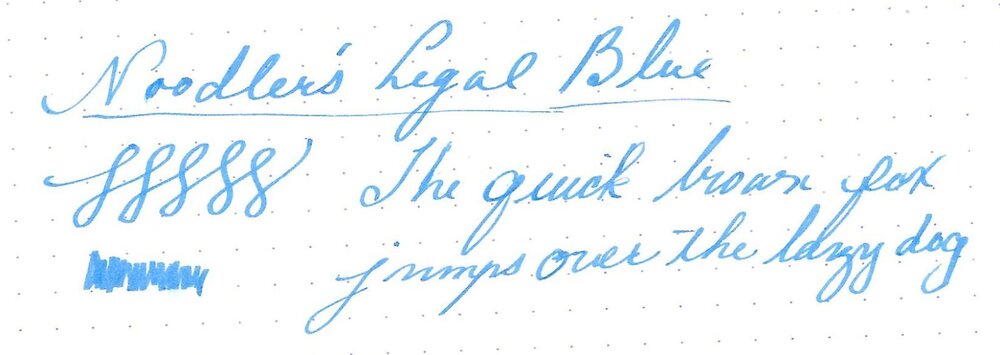 Noodler's Legal Blue
The quick brown fox
jumps over the lazy dog